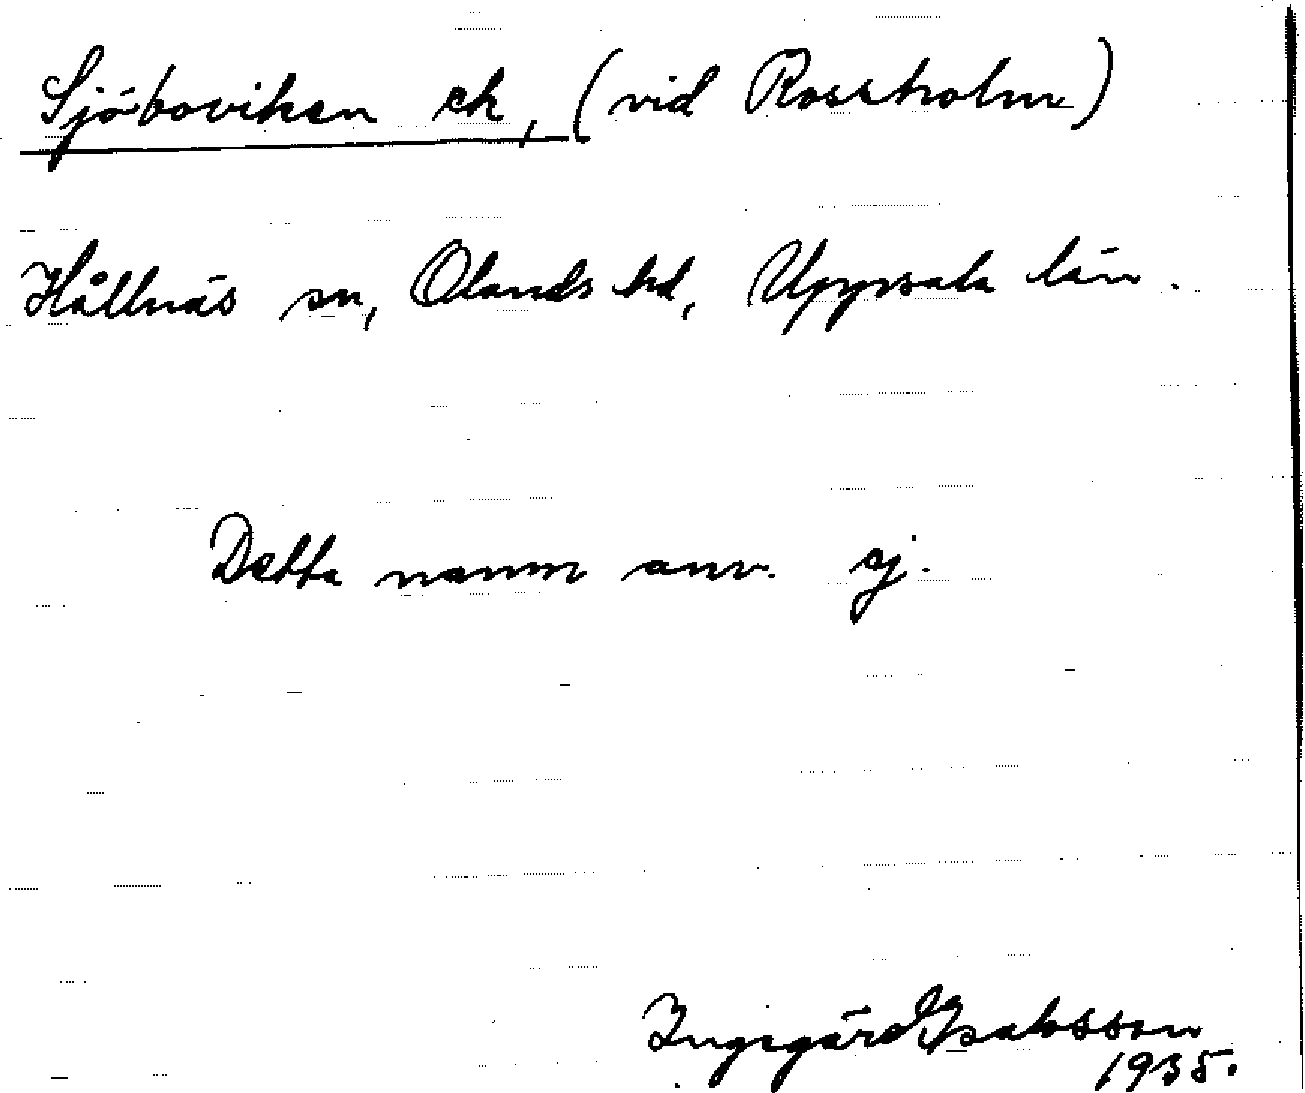 Sjöboviken ek, (vid Rossholm)
Hållnäs sn, Olands hd, Uppsala län.
Detta namn anv. ej.
Ingegärd Isaksson
1935.